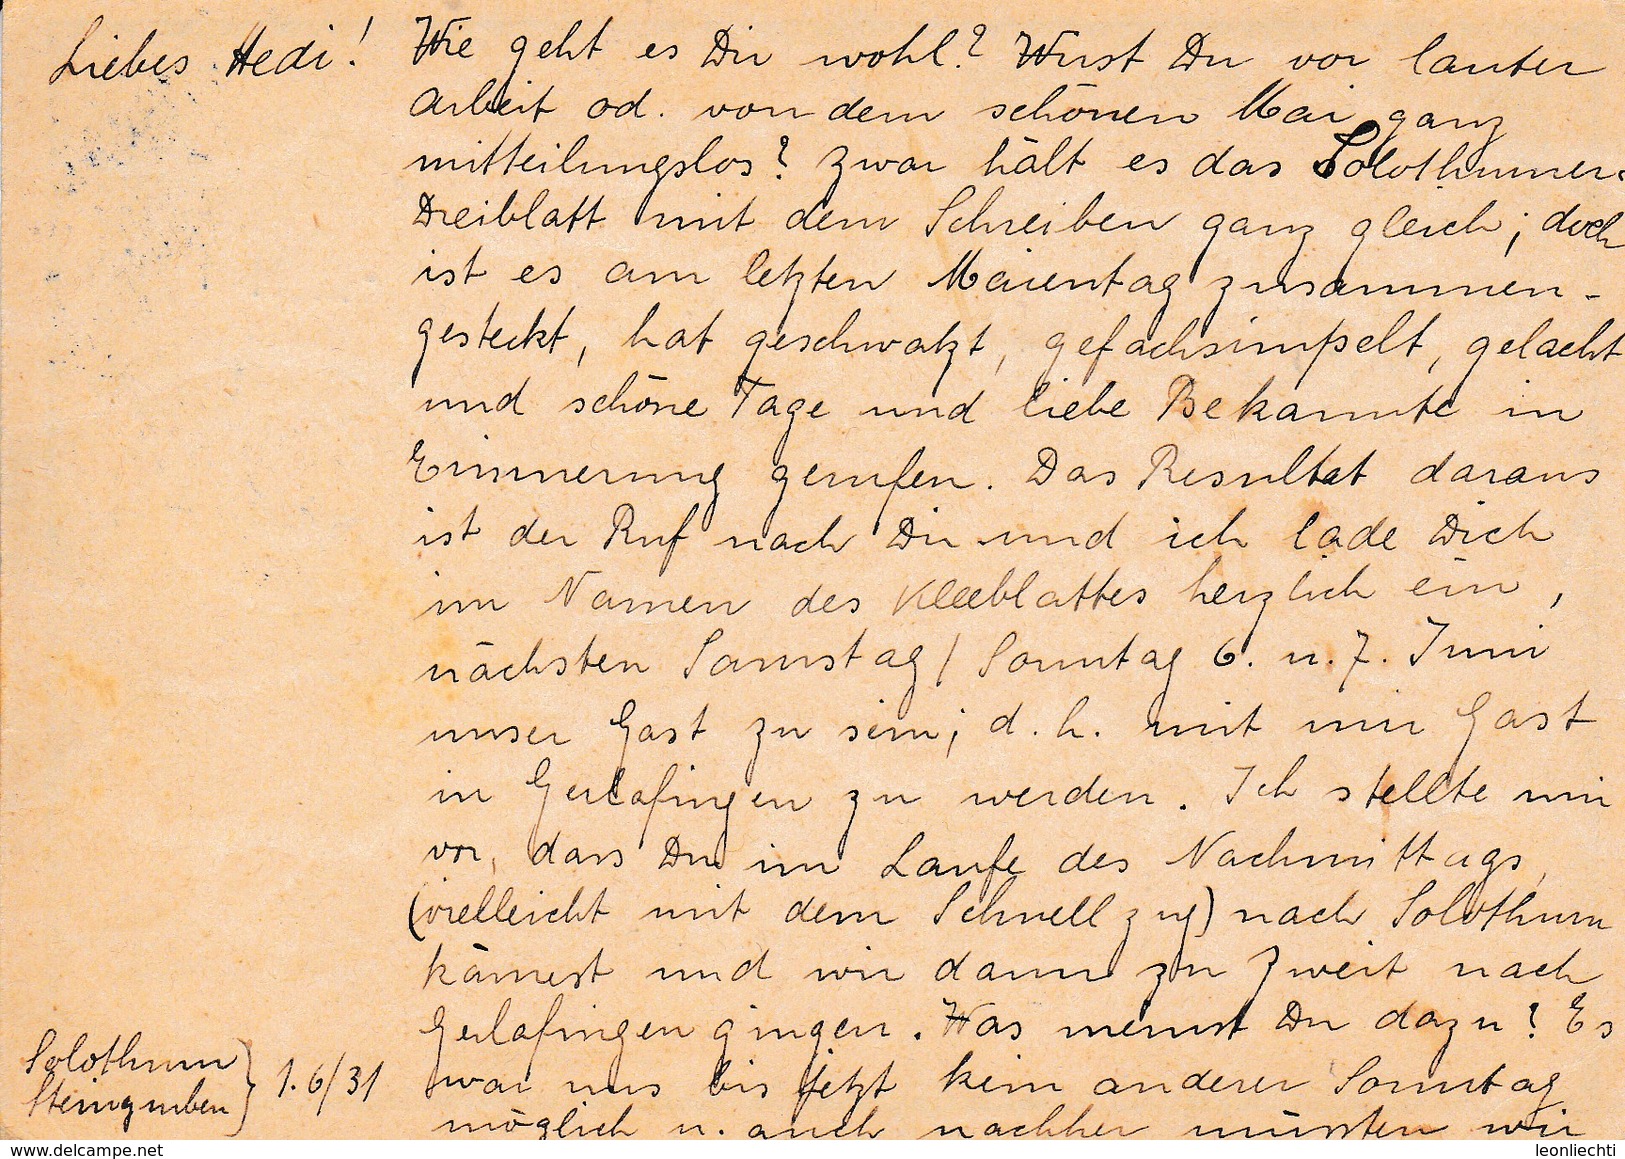 Liebes Hedi!
Wie geht es Dir wohl? Wirst Du vor lauter
Arbeit od. von dem schönen Mai ganz
mitteilungslos? Zwar hält es das Solothurner-
Dreiblatt mit dem Schreiben ganz gleich; doch
ist es am letzten Maientag zusammen-
gesteckt, hat geschwatzt, gefachsimpelt, gelacht
und schöne Tage und liebe Bekannte in
Erinnerung gerufen. Das Resultat daraus
ist der Ruf nach Dir und ich lade Dich
im Namen des Kleeblattes herzlich ein,
nächsten Samstag/Sonntag 6. u. 7. Juni
unser Gast zu sein; d. h. mit mir Gast
in Gerlafingen zu werden. Ich stellte mir
vor, dass Du im Laufe des Nachmittags,
(vielleicht mit dem Schnellzug) nach Solothurn
kämest und wir dann zu Zweit nach
Gerlafingen gingen. Was meinst Du dazu? Es
war uns bis jetzt kein anderer Sonntag
möglich u. auch nachher müssten wir
Solothurn
Steingruben } 1.6/31
www.delcampe.net
leonliechti